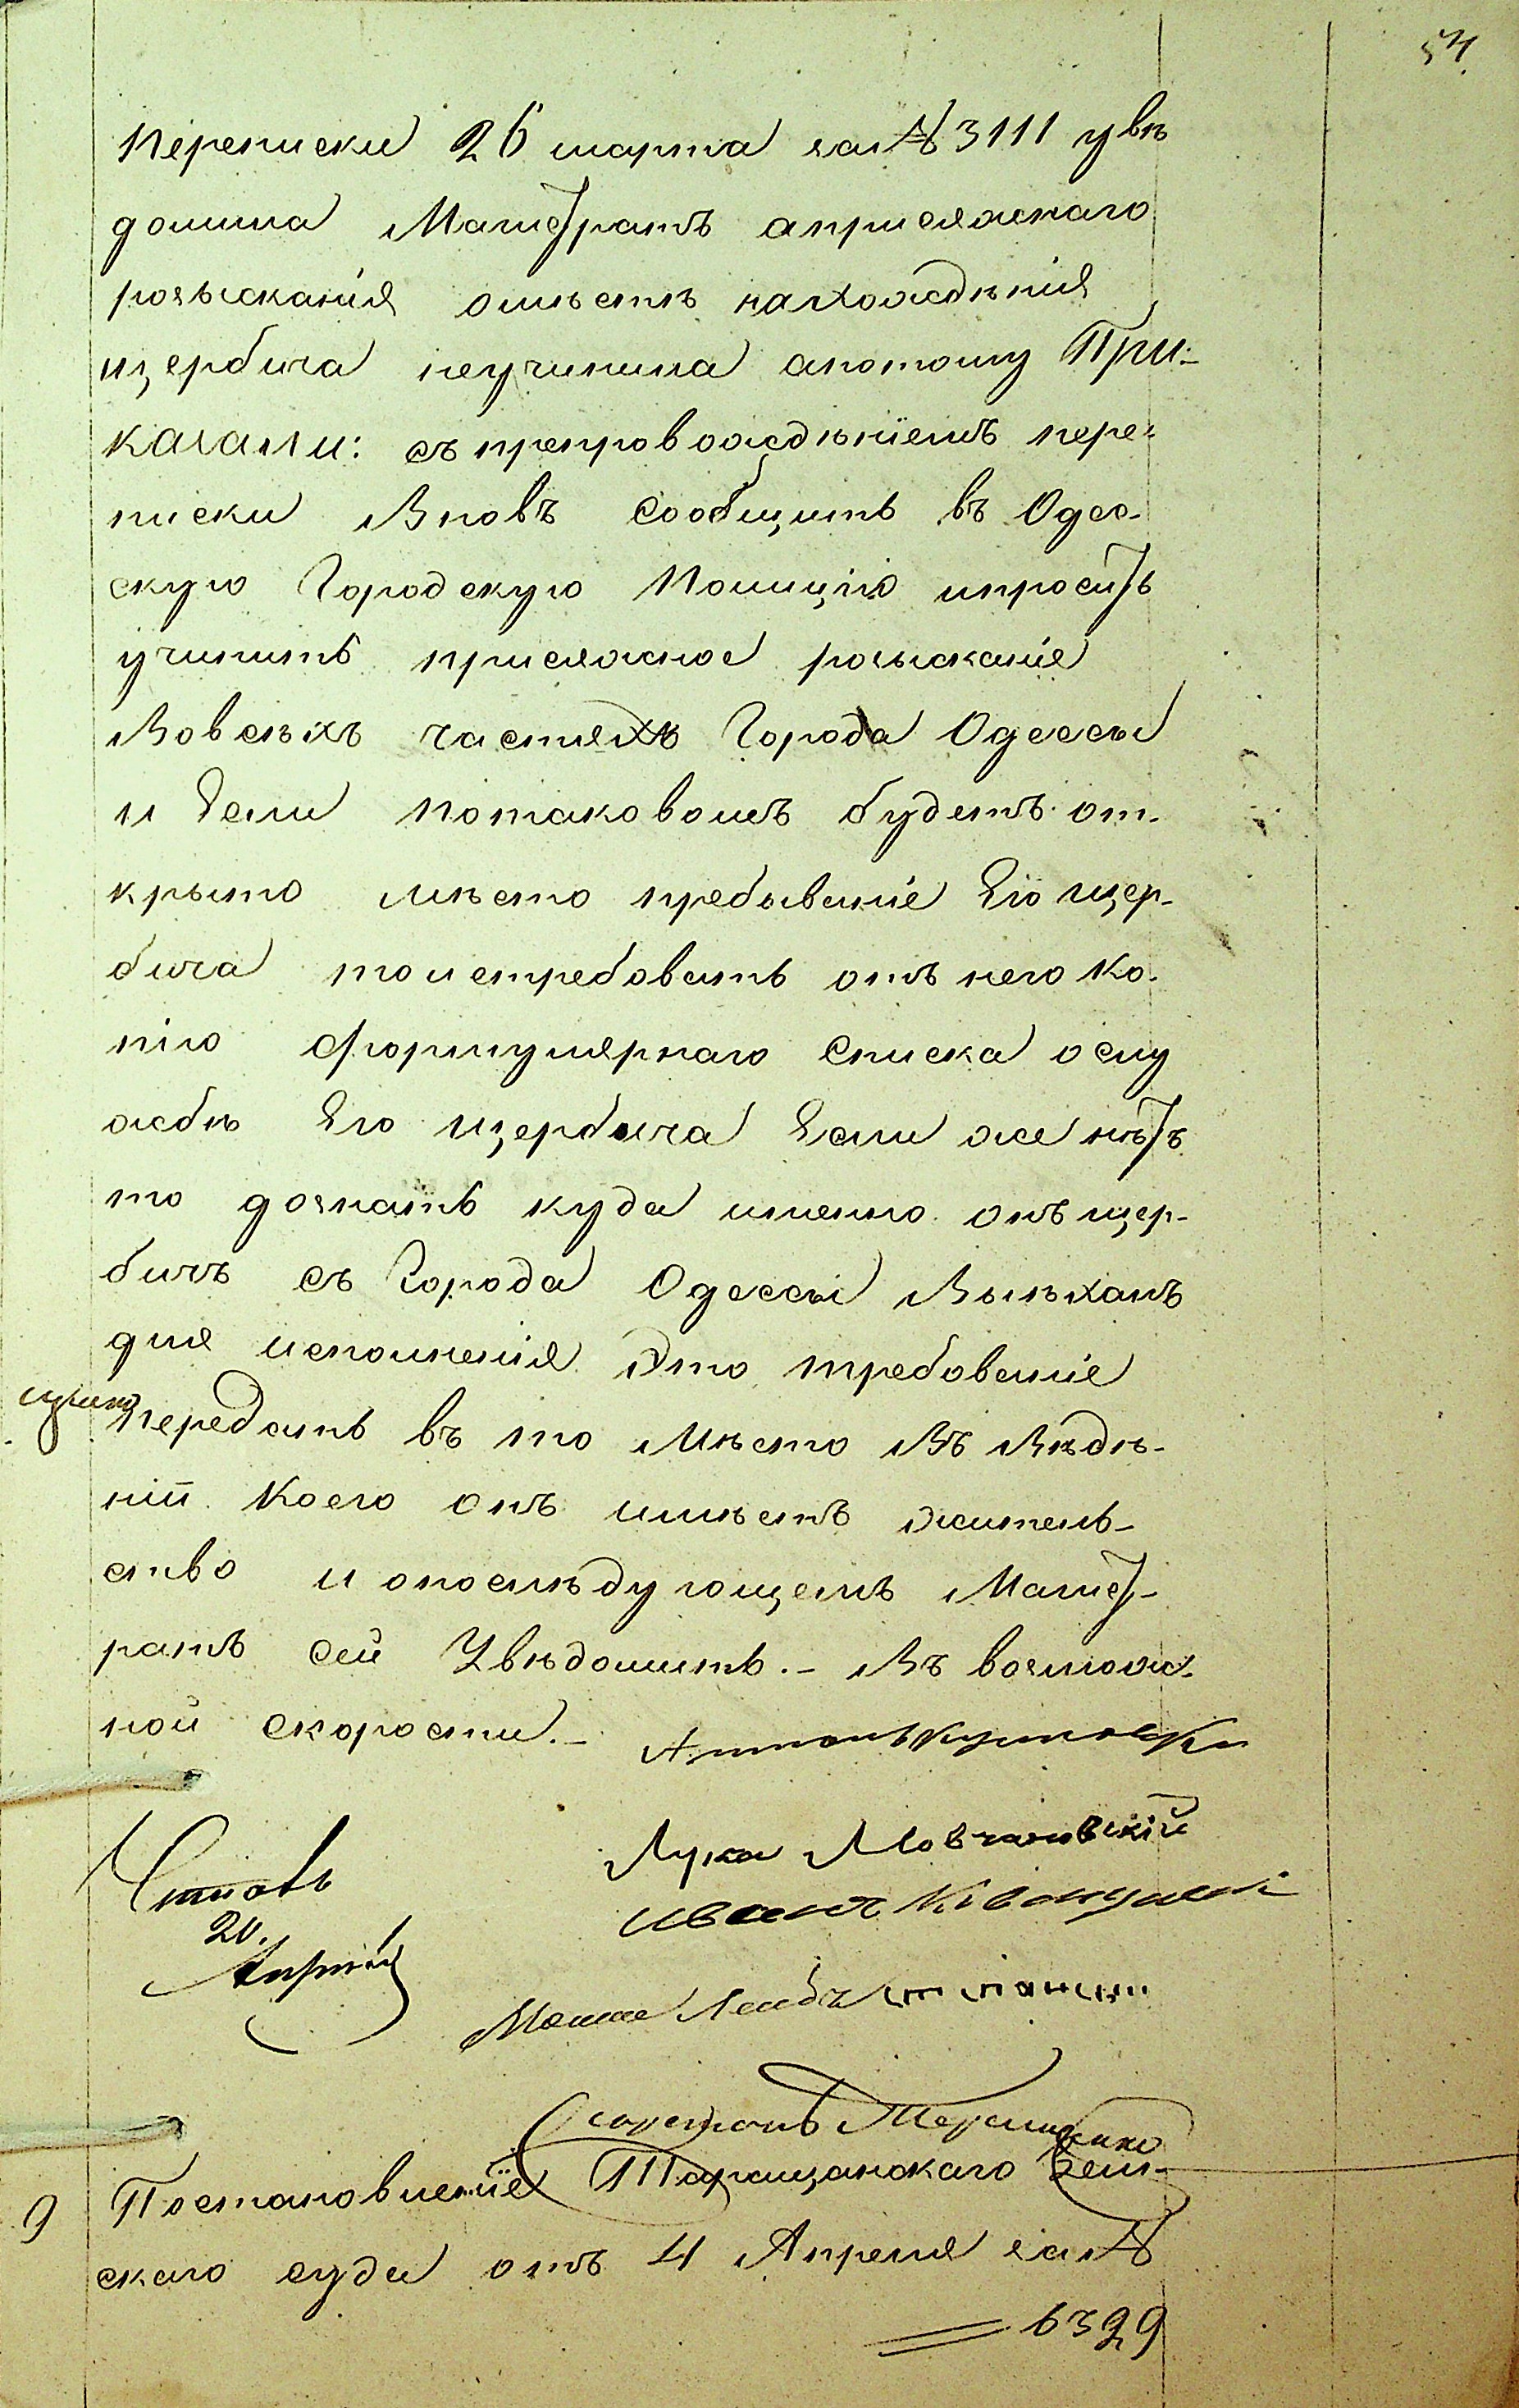 54.
переписки 26 марта за № 3111 увѣ
домила Магистратъ априсяжнаго
розысканія омѣстѣ нахождѣнія
щербича неучинила апотому При-
казали: съ препровождѣніемъ пере-
писки Вновь сообщить въ Одес-
скую Городскую Полицію ипросить
учинить присяжное розысканіе
Вовсѣхъ частяхъ Города Одессы
и Если потаковомъ будетъ от-
крыто мѣсто пребываніе Его щер-
бича тоистребовать отъ него ко-
пію формулярнаго списка ослу
жбѣ Его щербича Если же нѣтъ
то дознать куда именно онъ щер-
бичъ съ Города Одессы Выѣхалъ
для исполненія Это требованіе
передать въ то Мѣсто Въ Вѣдѣ-
ніи Коего онъ имѣетъ житель-
ство и опослѣдующемъ Магист-
ратъ сей Увѣдомить. - Въ возмож-
ной скорости. -
Лука Мовчановскій
Иванъ
20.
Апрѣля
Мошко Лейбъ
9 Постановленіе Таращанскаго Зем-
скаго суда отъ 4 Апреля за №
6329